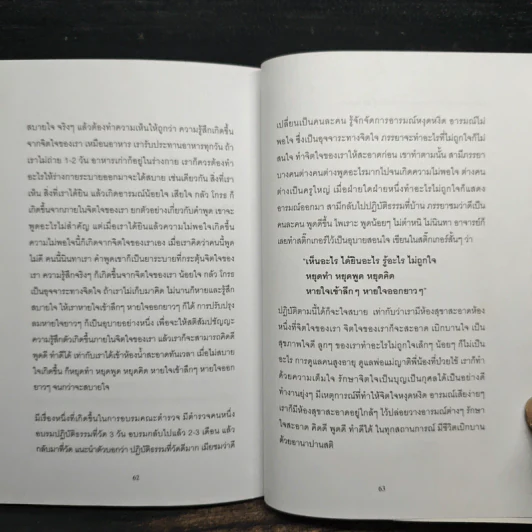 สบายใจ จริงๆ แล้วต้องทำความเห็นให้ถูกว่า ความรู้สึกเกิดขึ้น
จากจิตใจของเรา เหมือนอาหาร เรารับประทานอาหารทุกวัน ถ้า
เราไม่ถ่าย 1-2 วัน อาหารเก่าก็อยู่ในร่างกาย เราก็ควรต้องทำ
อะไรให้ร่างกายระบายออกมาจะได้สบาย เช่นเดียวกัน สิ่งที่เรา
เห็น สิ่งที่เราได้ยิน แล้วเกิดอารมณ์น้อยใจ เสียใจ กลัว โกรธ ก็
เกิดขึ้นจากภายในจิตใจของเรา ยกตัวอย่างเกี่ยวกับคำพูด เขาจะ
พูดอะไรไม่สำคัญ แต่เมื่อเราได้ยินแล้วเกิดความไม่พอใจขึ้น
ความไม่พอใจนี้ก็เกิดจากจิตใจของเราเอง เมื่อเราคิดว่าคนนี้พูด
ไม่ดี คนนี้นินทาเรา คำพูดเขาก็เป็นยาระบายที่กระตุ้นจิตใจของ
เรา ความรู้สึกจริงๆ ก็เกิดขึ้นจากจิตใจของเรา น้อยใจ กลัว โกรธ
เป็นอุจจาระทางจิตใจ ถ้าเราไม่เก็บมาคิด ไม่นานก็หายและรู้สึก
สบายใจ ให้เราหายใจเข้าลึกๆ หายใจออกยาวๆ ก็ได้ การปรับปรุง
ลมหายใจยาวๆ ก็เป็นอุบายอย่างหนึ่ง เพื่อจะให้สติสัมปชัญญะ
ความรู้สึกตัวเกิดขึ้นภายในจิตใจของเรา แล้วเราก็จะสามารถคิดดี
พูดดี ทำดีได้ เท่ากับเราได้เข้าห้องน้ำสะอาดทันเวลา เมื่อไม่สบาย
ใจเกิดขึ้น ก็หยุดทำ หยุดพูด หยุดคิด หายใจเข้าลึกๆ หายใจออก
ยาวๆ จนกว่าจะสบายใจ
มีเรื่องหนึ่งที่เกิดขึ้นในการอบรมคณะตำรวจ มีตำรวจคนหนึ่ง
อบรมปฏิบัติธรรมที่วัด 3 วัน อบรมกลับไปแล้ว 2-3 เดือน แล้ว
กลับมาที่วัด แนะนำตัวบอกว่า ปฏิบัติธรรมที่วัดดีมาก เมียชมว่าดี
62
เปลี่ยนเป็นคนละคน รู้จักจัดการอารมณ์หงุดหงิด อารมณ์ไม่
พอใจ ซึ่งเป็นอุจจาระทางจิตใจ ภรรยาจะทำอะไรที่ไม่ถูกใจก็ไม่
สนใจ ทำจิตใจของเราให้สะอาดก่อน เขาทำตามนั้น สามีภรรยา
บางคนต่างคนต่างพูดอะไรมากไปจนเกิดความไม่พอใจ ต่างคน
ต่างเป็นครูใหญ่ เมื่อฝ่ายใดฝ่ายหนึ่งทำอะไรไม่ถูกใจก็แสดง
อารมณ์ออกมา สามีกลับไปปฏิบัติธรรมที่บ้าน ภรรยาชมว่าดีเป็น
คนละคน พูดดีขึ้น ไพเราะ พูดน้อยๆ ไม่ตำหนิ ไม่นินทา อาจารย์ก็
เลยทำสติ๊กเกอร์ไว้เป็นอุบายสอนใจ เขียนในสติ๊กเกอร์สั้นๆ ว่า
"เห็นอะไร ได้ยินอะไร รู้อะไร ไม่ถูกใจ
หยุดทำ หยุดพูด หยุดคิด
หายใจเข้าลึกๆ หายใจออกยาวๆ"
ปฏิบัติตามนี้ได้ก็จะใจสบาย เท่ากับว่าเรามีห้องสุขาสะอาดห้อง
หนึ่งที่จิตใจของเรา จิตใจของเราก็จะสะอาด เบิกบานใจ เป็น
สุขภาพใจดี ลูกๆ ของเราทำอะไรไม่ถูกใจเล็กๆ น้อยๆ ก็ไม่เป็น
อะไร การดูแลคนสูงอายุ ดูแลพ่อแม่ญาติพี่น้องที่ป่วยไข้ เราก็ทำ
ด้วยความเต็มใจ รักษาจิตใจเป็นบุญเป็นกุศลได้เป็นอย่างดี
ทำงานยุ่งๆ มีเหตุการณ์ที่ทำให้จิตใจหงุดหงิด อารมณ์เสียง่ายๆ
เราก็มีห้องสุขาสะอาดอยู่ใกล้ๆ ไว้ปล่อยวางอารมณ์ต่างๆ รักษา
ใจสะอาด คิดดี พูดดี ทำดีได้ ในทุกสถานการณ์ มีชีวิตเบิกบาน
ด้วยอานาปานสติ
63